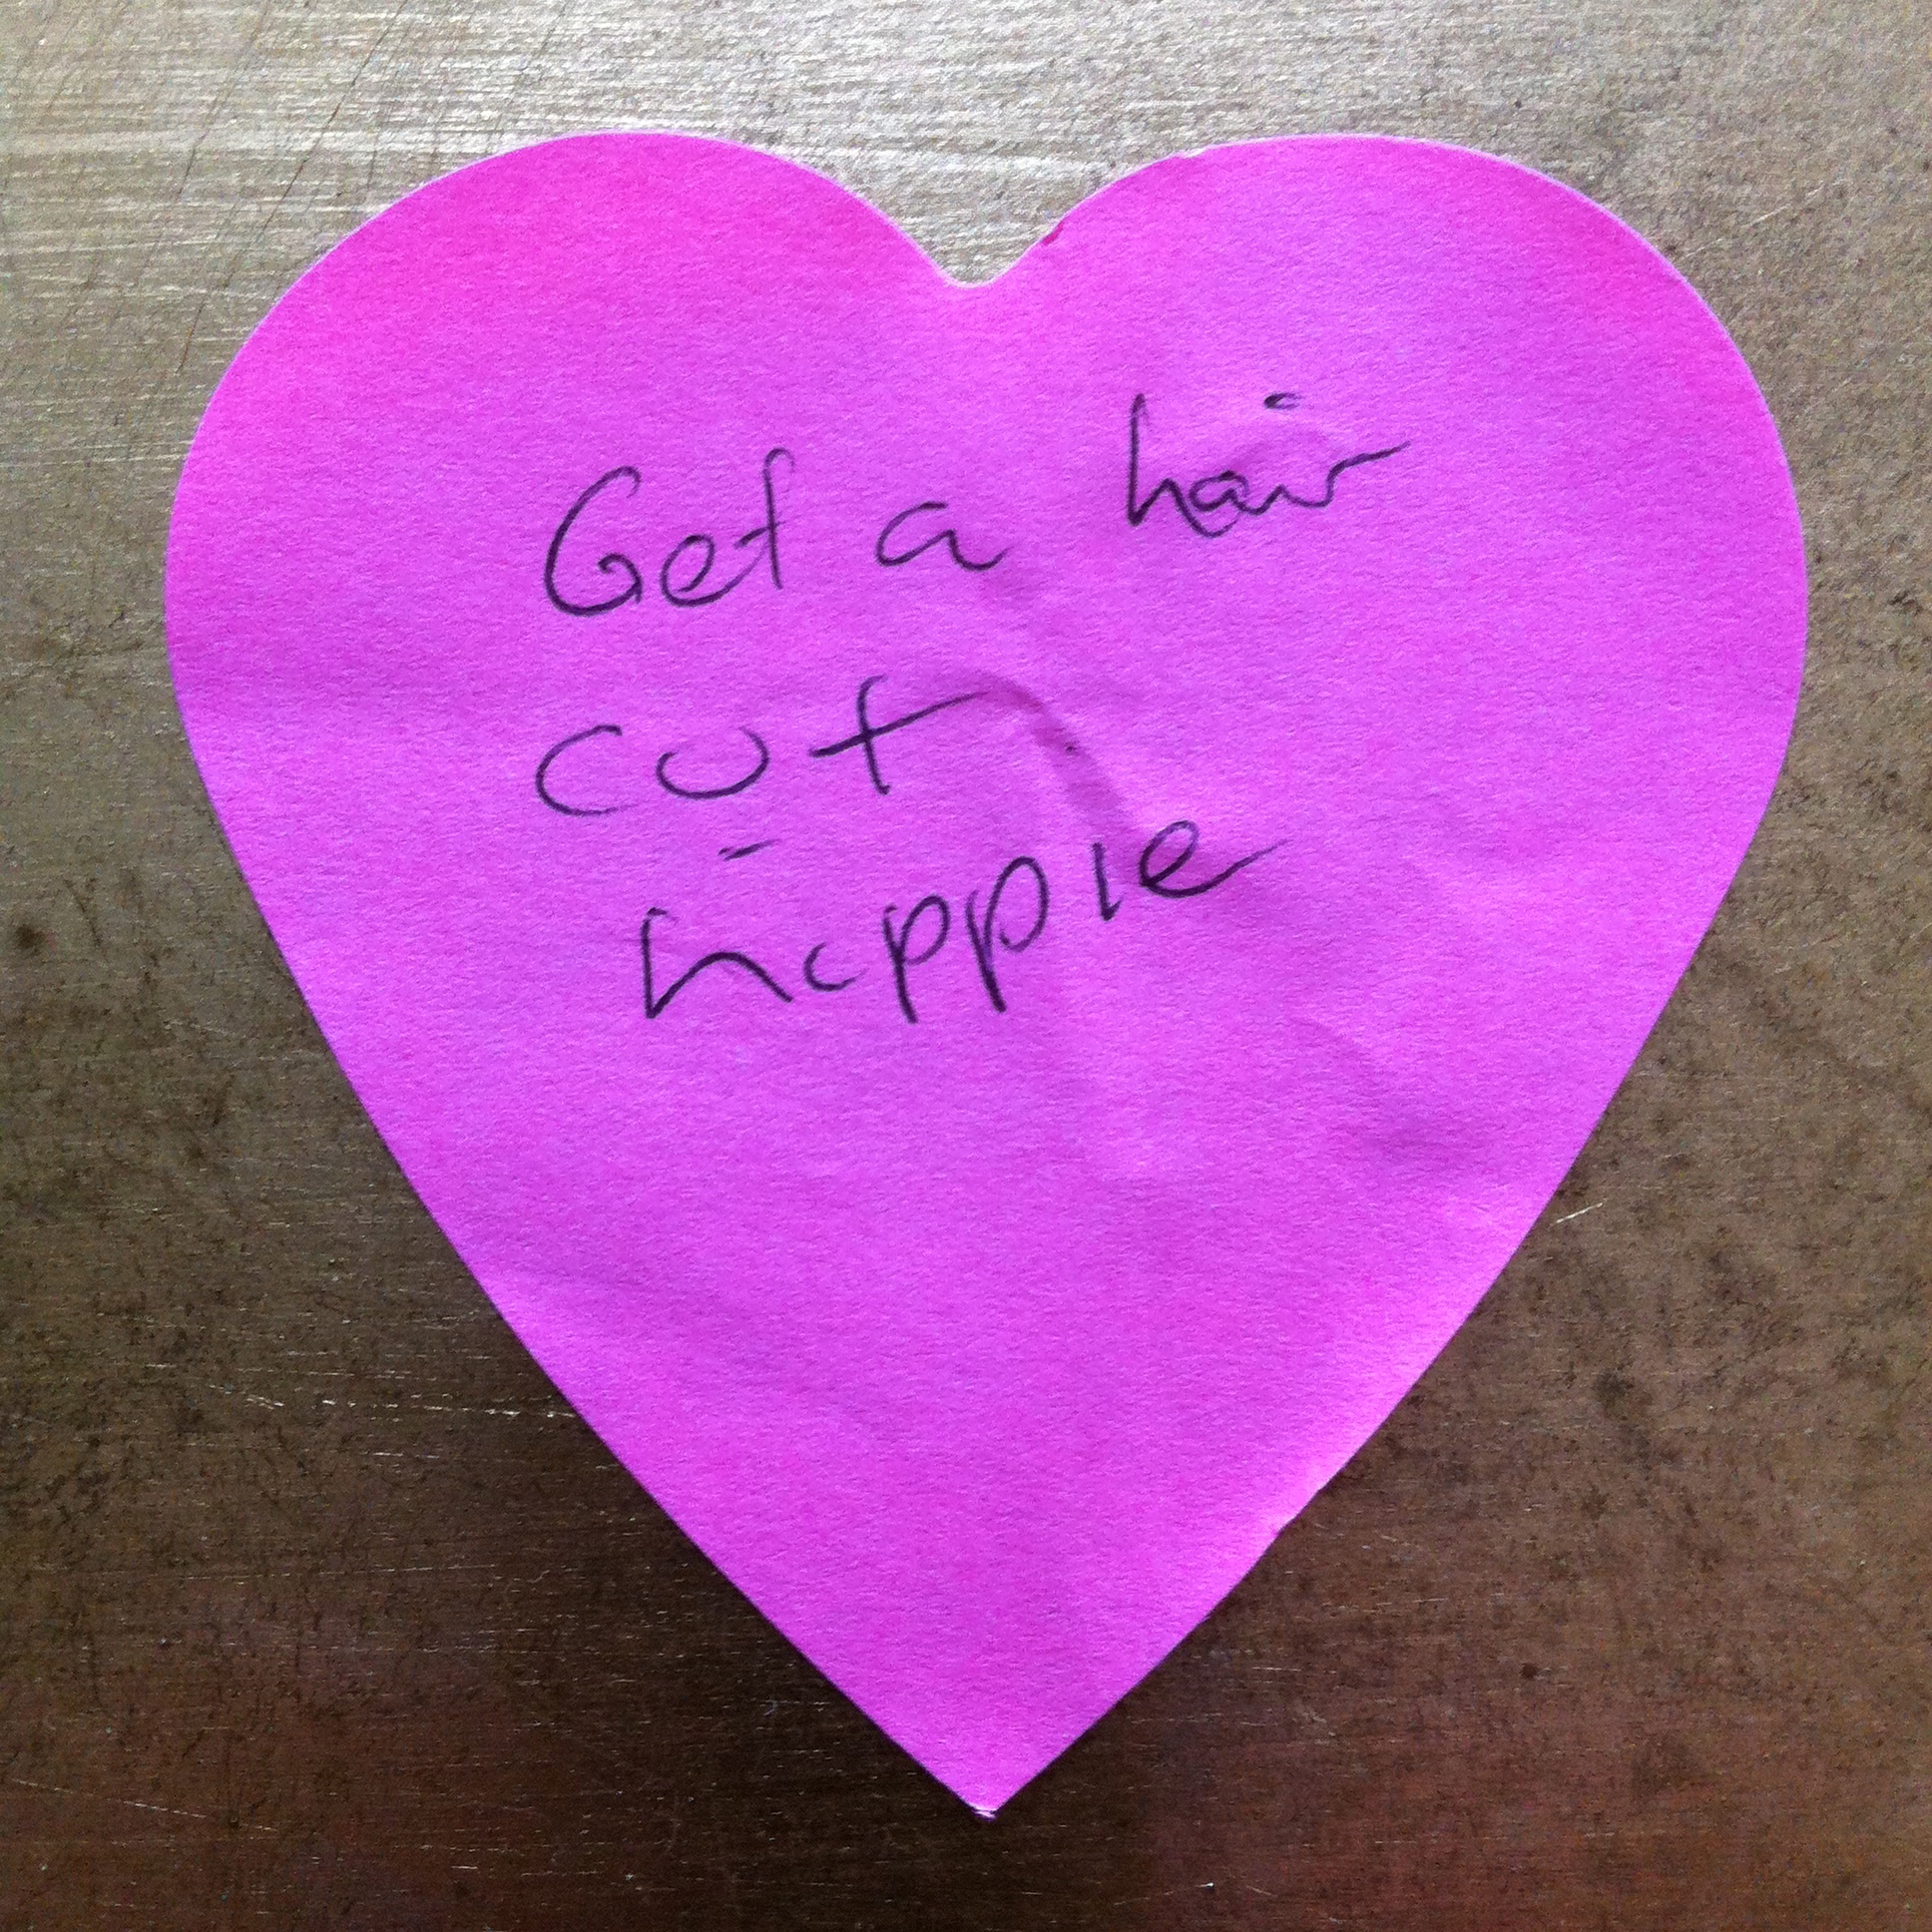 Get a hair
cut
hippie